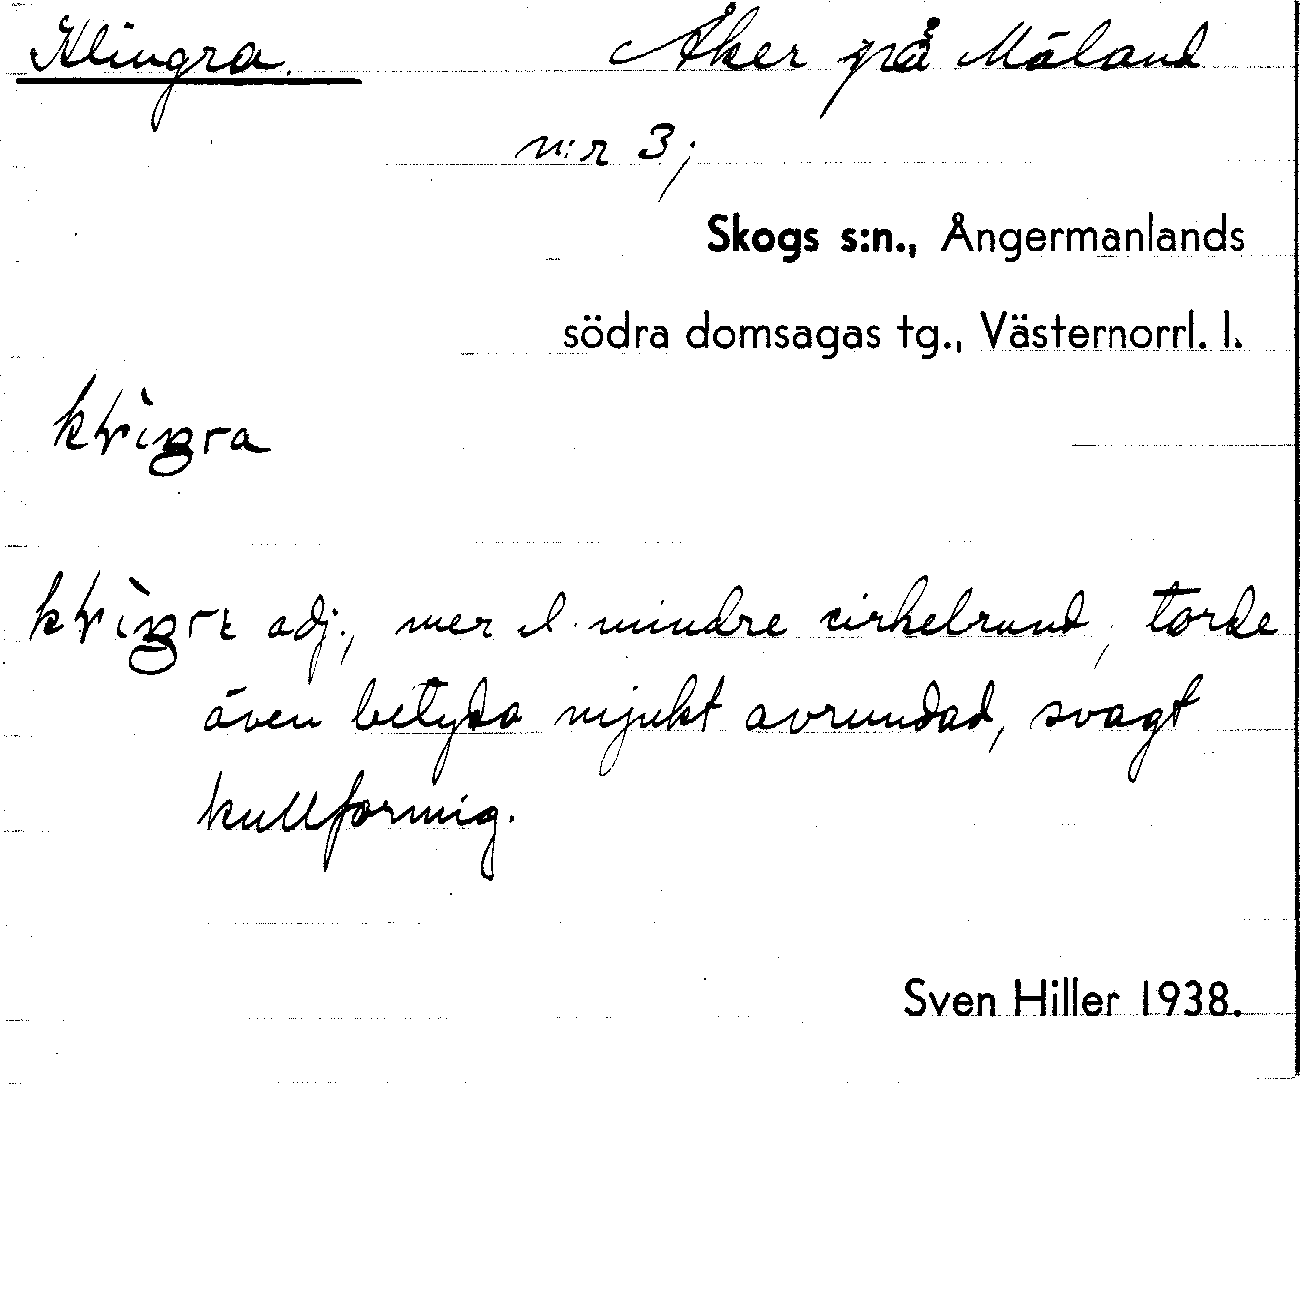 Klingra. Åker på Mäland
n:r 3;
Skogs s:n., Ångermanlands
södra domsagas tg., Västernorrl. l.
adj., mer l. mindre cirkelrund, torde
även betyda mjukt avrundad, svagt
kullformig.
Sven Hiller 1938.